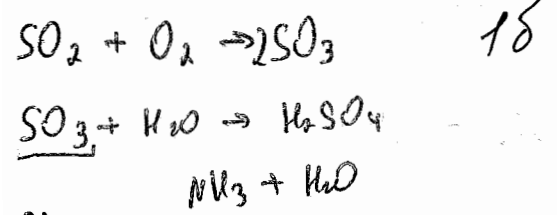 SO₂ + O₂ → 2SO₃ 1δ
SO₃ + H₂O → H₂SO₄
NH₃ + H₂O